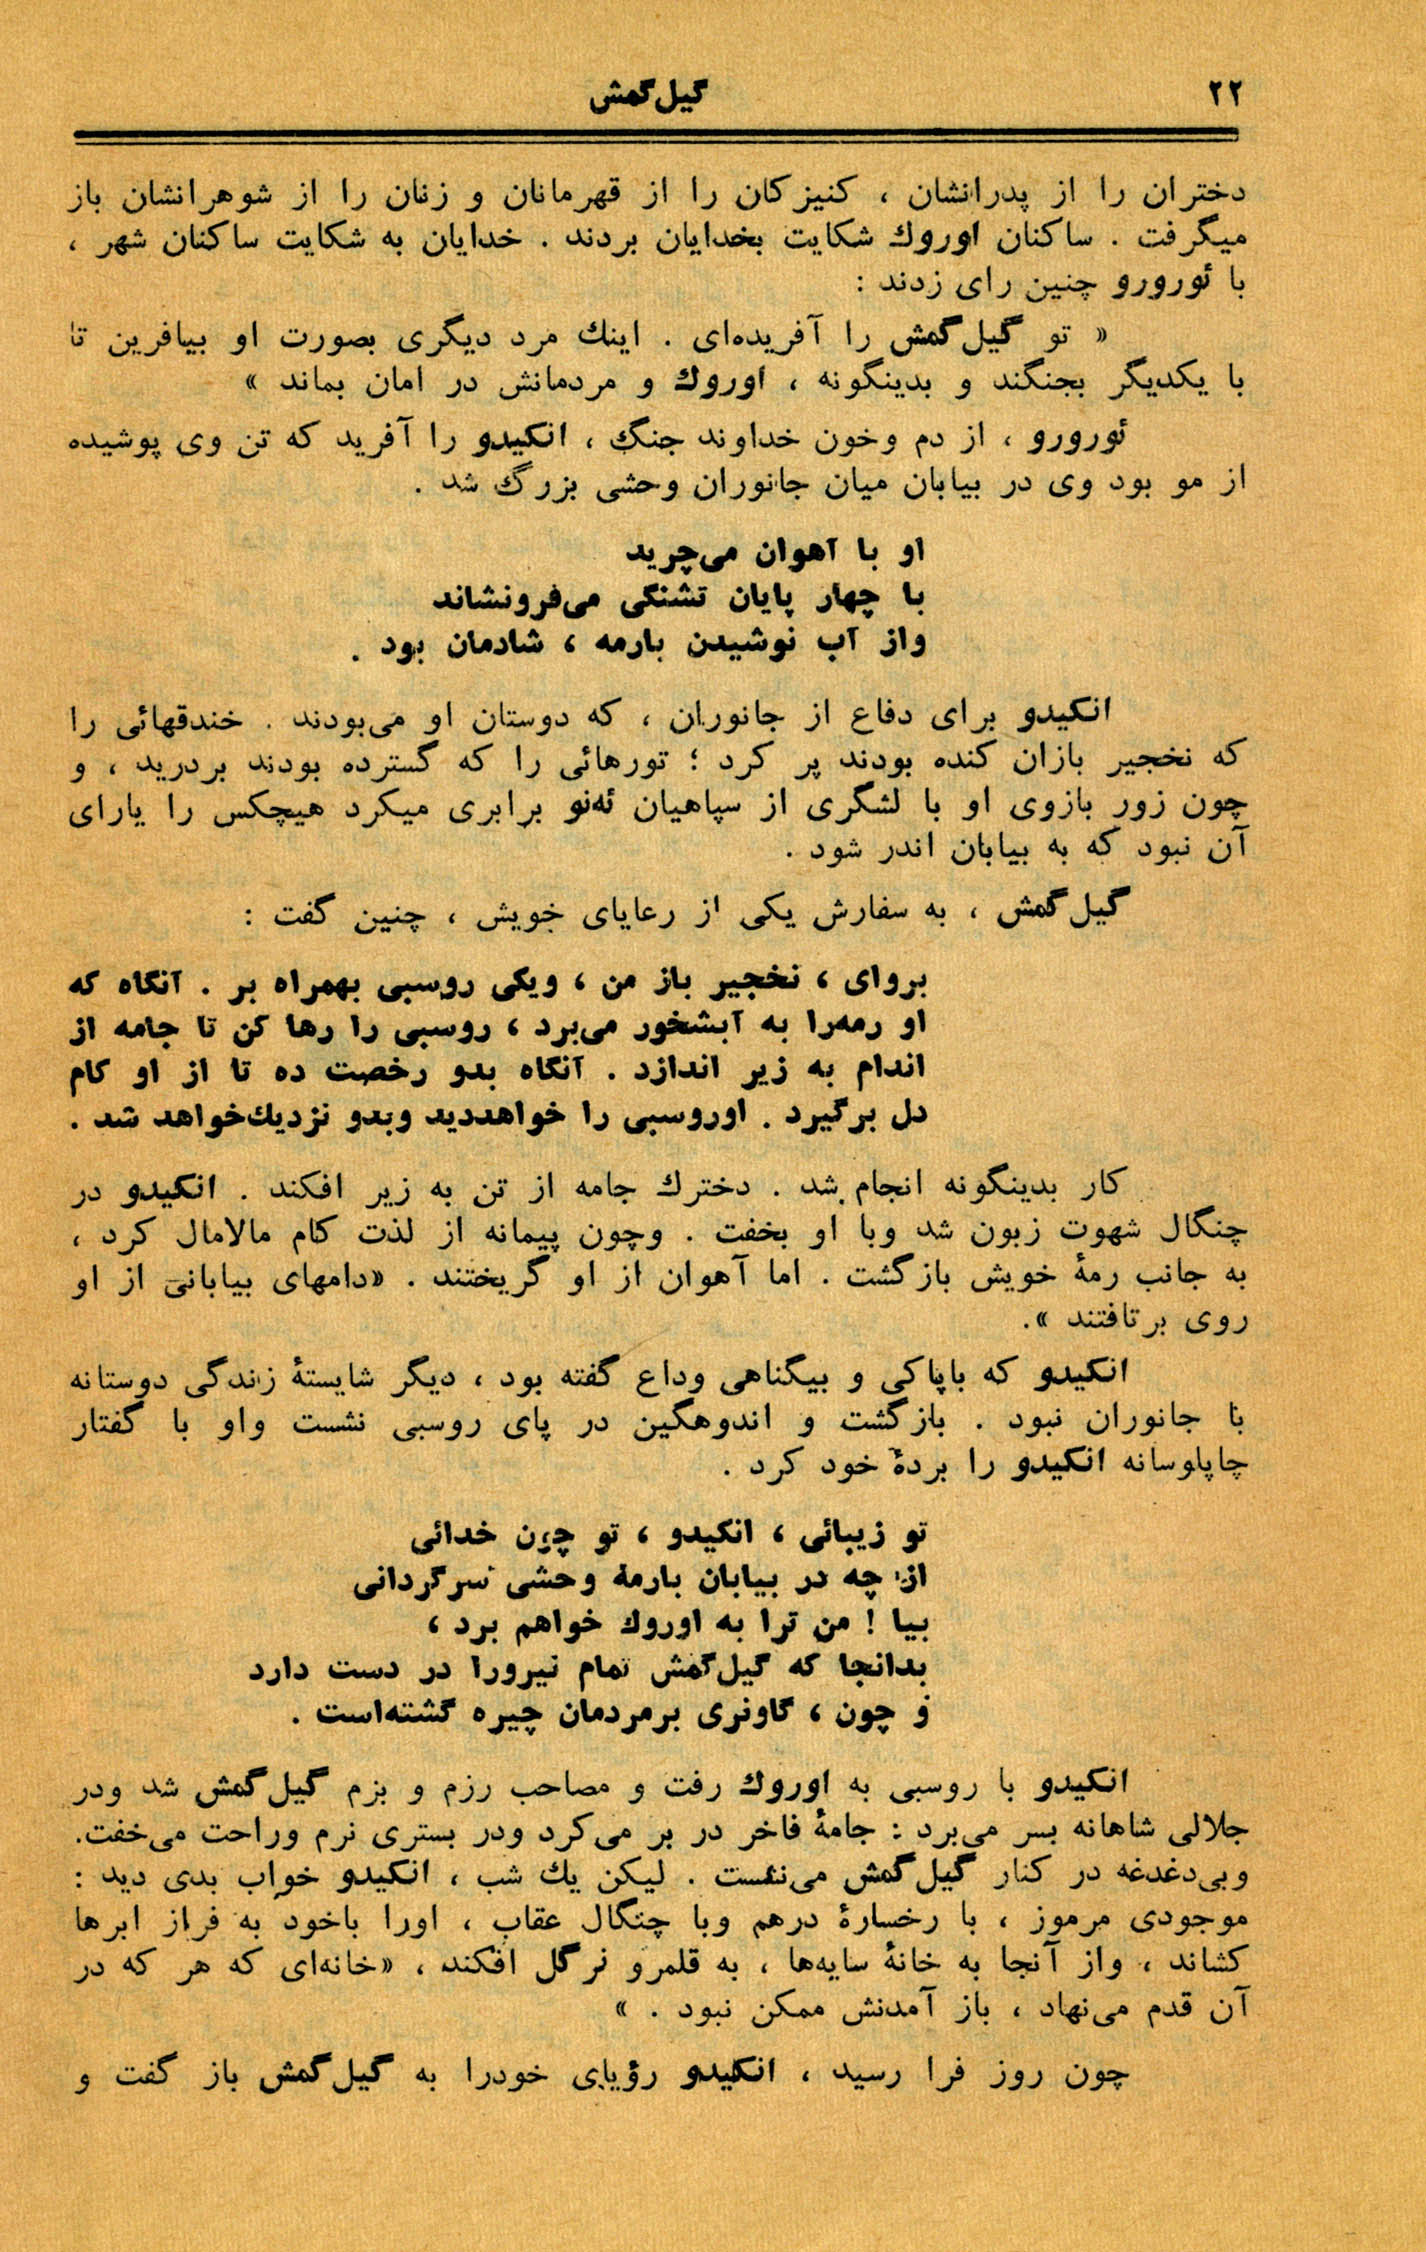 ۲۲
گیل‌گمش
دختران را از پدرانشان ، کنیزکان را از قهرمانان و زنان را از شوهرانشان باز
میگرفت . ساکنان اوروك شکایت بخدایان بردند . خدایان به شکایت ساکنان شهر ،
با ئورورو چنین رای زدند :
« تو گیل‌گمش را آفریده‌ای . اینك مرد دیگری بصورت او بیافرین تا
با یکدیگر بجنگند و بدینگونه ، اوروك و مردمانش در امان بماند »
ئورورو ، از دم وخون خداوند جنگ ، انکیدو را آفرید که تن وی پوشیده
از مو بود وی در بیابان میان جانوران وحشی بزرگ شد .
او با آهوان می‌چرید
با چهار پایان تشنگی می‌فرونشاند
واز آب نوشیدن بارمه ، شادمان بود .
انکیدو برای دفاع از جانوران ، که دوستان او می‌بودند . خندقهائی را
که نخجیر بازان کنده بودند پر کرد ؛ تورهائی را که گسترده بودند بردرید ، و
چون زور بازوی او با لشگری از سپاهیان ئه‌نو برابری میکرد هیچکس را یارای
آن نبود که به بیابان اندر شود .
گیل‌گمش ، به سفارش یکی از رعایای خویش ، چنین گفت :
بروای ، نخجیر باز من ، ویکی روسبی بهمراه بر . آنگاه که
او رمه‌را به آبشخور می‌برد ، روسبی را رها کن تا جامه از
اندام به زیر اندازد . آنگاه بدو رخصت ده تا از او کام
دل برگیرد . اوروسبی را خواهددید وبدو نزدیك‌خواهد شد .
کار بدینگونه انجام شد . دخترك جامه از تن به زیر افکند . انکیدو در
چنگال شهوت زبون شد وبا او بخفت . وچون پیمانه از لذت کام مالامال کرد ،
به جانب رمهٔ خویش بازگشت . اما آهوان از او گریختند . «دامهای بیابانی از او
روی برتافتند ».
انکیدو که باپاکی و بیگناهی وداع گفته بود ، دیگر شایستهٔ زندگی دوستانه
با جانوران نبود . بازگشت و اندوهگین در پای روسبی نشست واو با گفتار
چاپلوسانه انکیدو را بردهٔ خود کرد .
تو زیبائی ، انکیدو ، تو چون خدائی
از چه در بیابان بارمهٔ وحشی سرگردانی
بیا ! من ترا به اوروك خواهم برد ،
بدانجا که گیل‌گمش تمام نیرورا در دست دارد
و چون ، گاونری برمردمان چیره گشته‌است .
انکیدو با روسبی به اوروك رفت و مصاحب رزم و بزم گیل‌گمش شد ودر
جلالی شاهانه بسر می‌برد : جامهٔ فاخر در بر می‌کرد ودر بستری نرم وراحت می‌خفت.
وبی‌دغدغه در کنار گیل‌گمش می‌نشست . لیکن یك شب ، انکیدو خواب بدی دید :
موجودی مرموز ، با رخسارهٔ درهم وبا چنگال عقاب ، اورا باخود به فراز ابرها
کشاند ، واز آنجا به خانهٔ سایه‌ها ، به قلمرو نرگل افکند ، «خانه‌ای که هر که در
آن قدم می‌نهاد ، باز آمدنش ممکن نبود . »
چون روز فرا رسید ، انکیدو رؤیای خودرا به گیل‌گمش باز گفت و